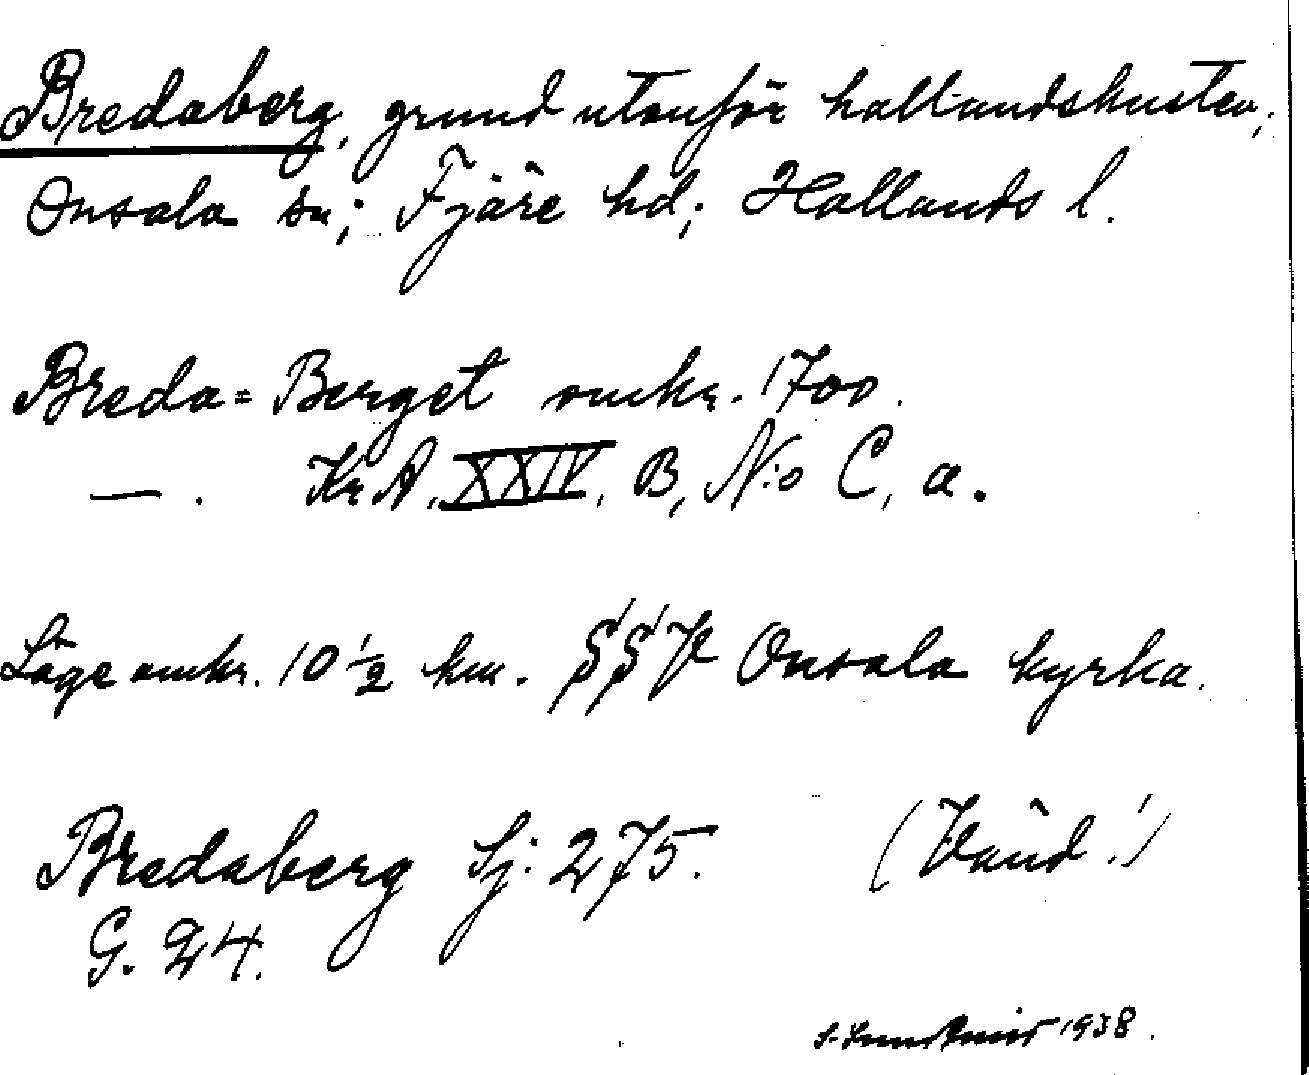 Bredaberg, grund utanför hallandskusten;
Onsala sn; Fjäre hd; Hallands l.
Breda=Berget omkr. 1700.
—. KrA, XXIV, B, N:o C, a.
Läge omkr. 10 1/2 km. SSV Onsala kyrka.
Bredaberg Sj: 275. (Vänd!)
G. 24.
1938.